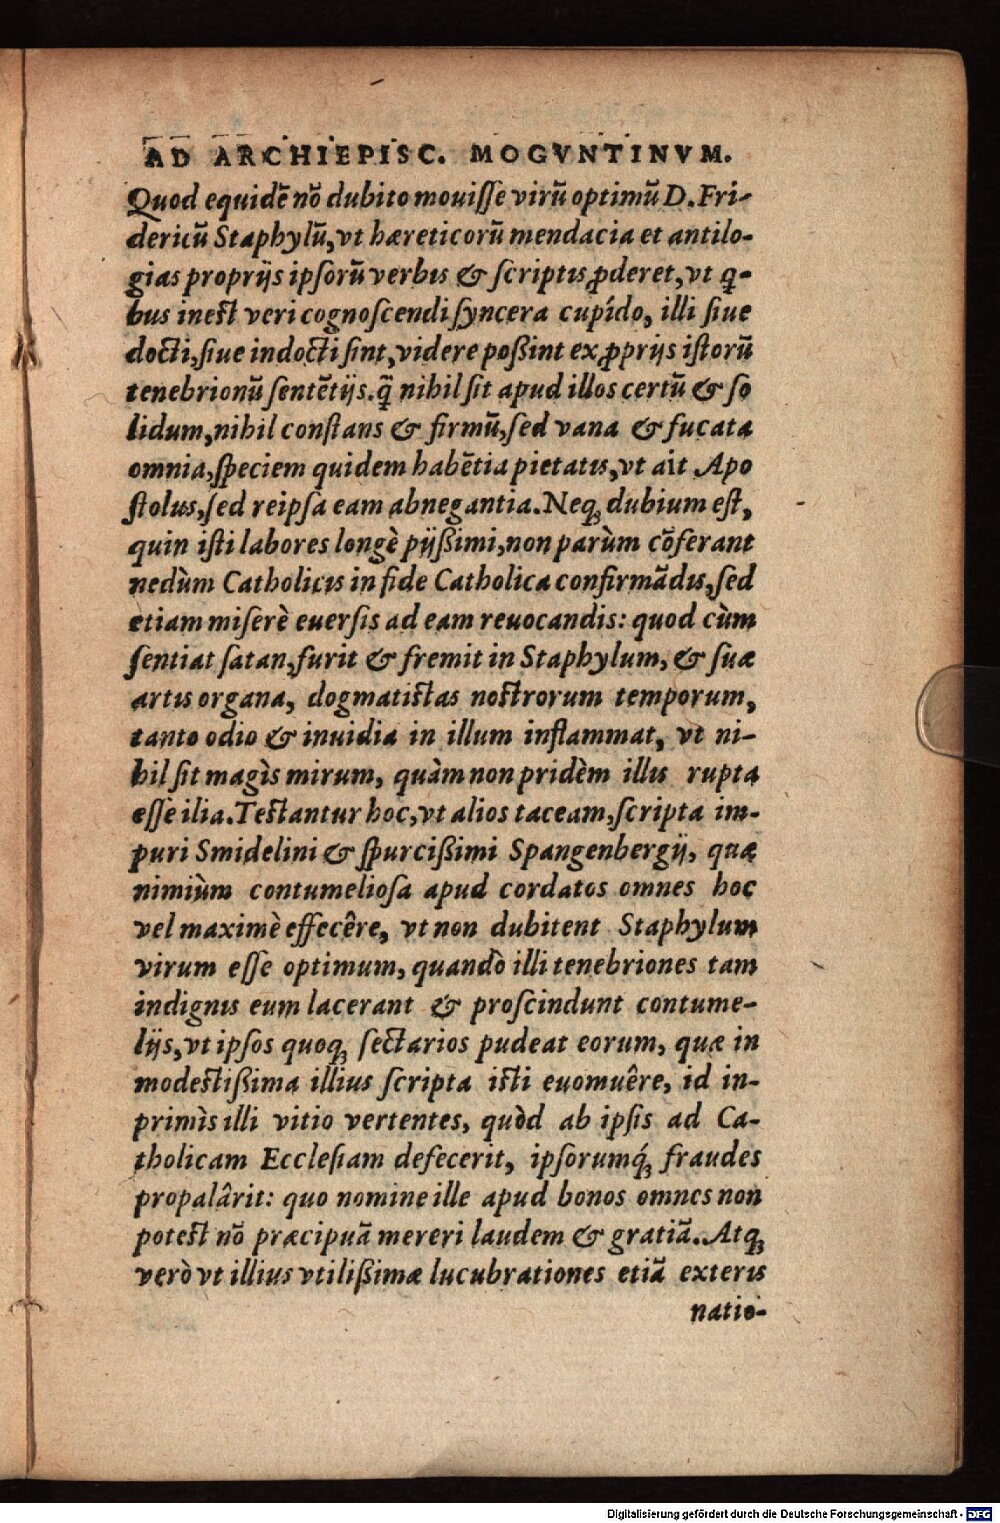 AD ARCHIEPISC. MOGVNTINVM.
Quod equidē nō dubito mouiſſe virū optimū D. Fri-
dericū Staphylū, vt hæreticorū mendacia et antilo-
gias proprijs ipſorū verbis & ſcriptis ꝓderet, vt q̃-
bus ineſt veri cognoſcendi ſyncera cupído, illi ſiue
docti, ſiue indocti ſint, videre poßint ex ꝓprijs iſtorū
tenebrionū ſentētijs. q̃ nihil ſit apud illos certū & ſo
lidum, nihil conſtans & firmū, ſed vana & fucata
omnia, ſpeciem quidem habētia pietatis, vt ait Apo
ſtolus, ſed reipſa eam abnegantia. Neqꝫ dubium eſt,
quin iſti labores longè pijßimi, non parùm cōferant
nedùm Catholicis in fide Catholica confirmādis, ſed
etiam miſerè euerſis ad eam reuocandis: quod cùm
ſentiat ſatan, furit & fremit in Staphylum, & ſuæ
artis organa, dogmatiſtas noſtrorum temporum,
tanto odio & inuidia in illum inflammat, vt ni-
hil ſit magìs mirum, quàm non pridèm illis rupta
eſſe ilia. Teſtantur hoc, vt alios taceam, ſcripta im-
puri Smidelini & ſpurcißimi Spangenbergij, quæ
nimiùm contumelioſa apud cordatos omnes hoc
vel maximè effecêre, vt non dubitent Staphylum
virum eſſe optimum, quandò illi tenebriones tam
indignis eum lacerant & proſcindunt contume-
lijs, vt ipſos quoqꝫ ſectarios pudeat eorum, quæ in
modeſtißima illius ſcripta iſti euomuêre, id in-
primìs illi vitio vertentes, quòd ab ipſis ad Ca-
tholicam Eccleſiam defecerit, ipſorumq́ꝫ fraudes
propalârit: quo nomine ille apud bonos omnes non
poteſt nō præcipuā mereri laudem & gratiā. Atqꝫ
verò vt illius vtilißimæ lucubrationes etiā exteris
natio-
Digitalisierung gefördert durch die Deutsche Forschungsgemeinschaft - DFG